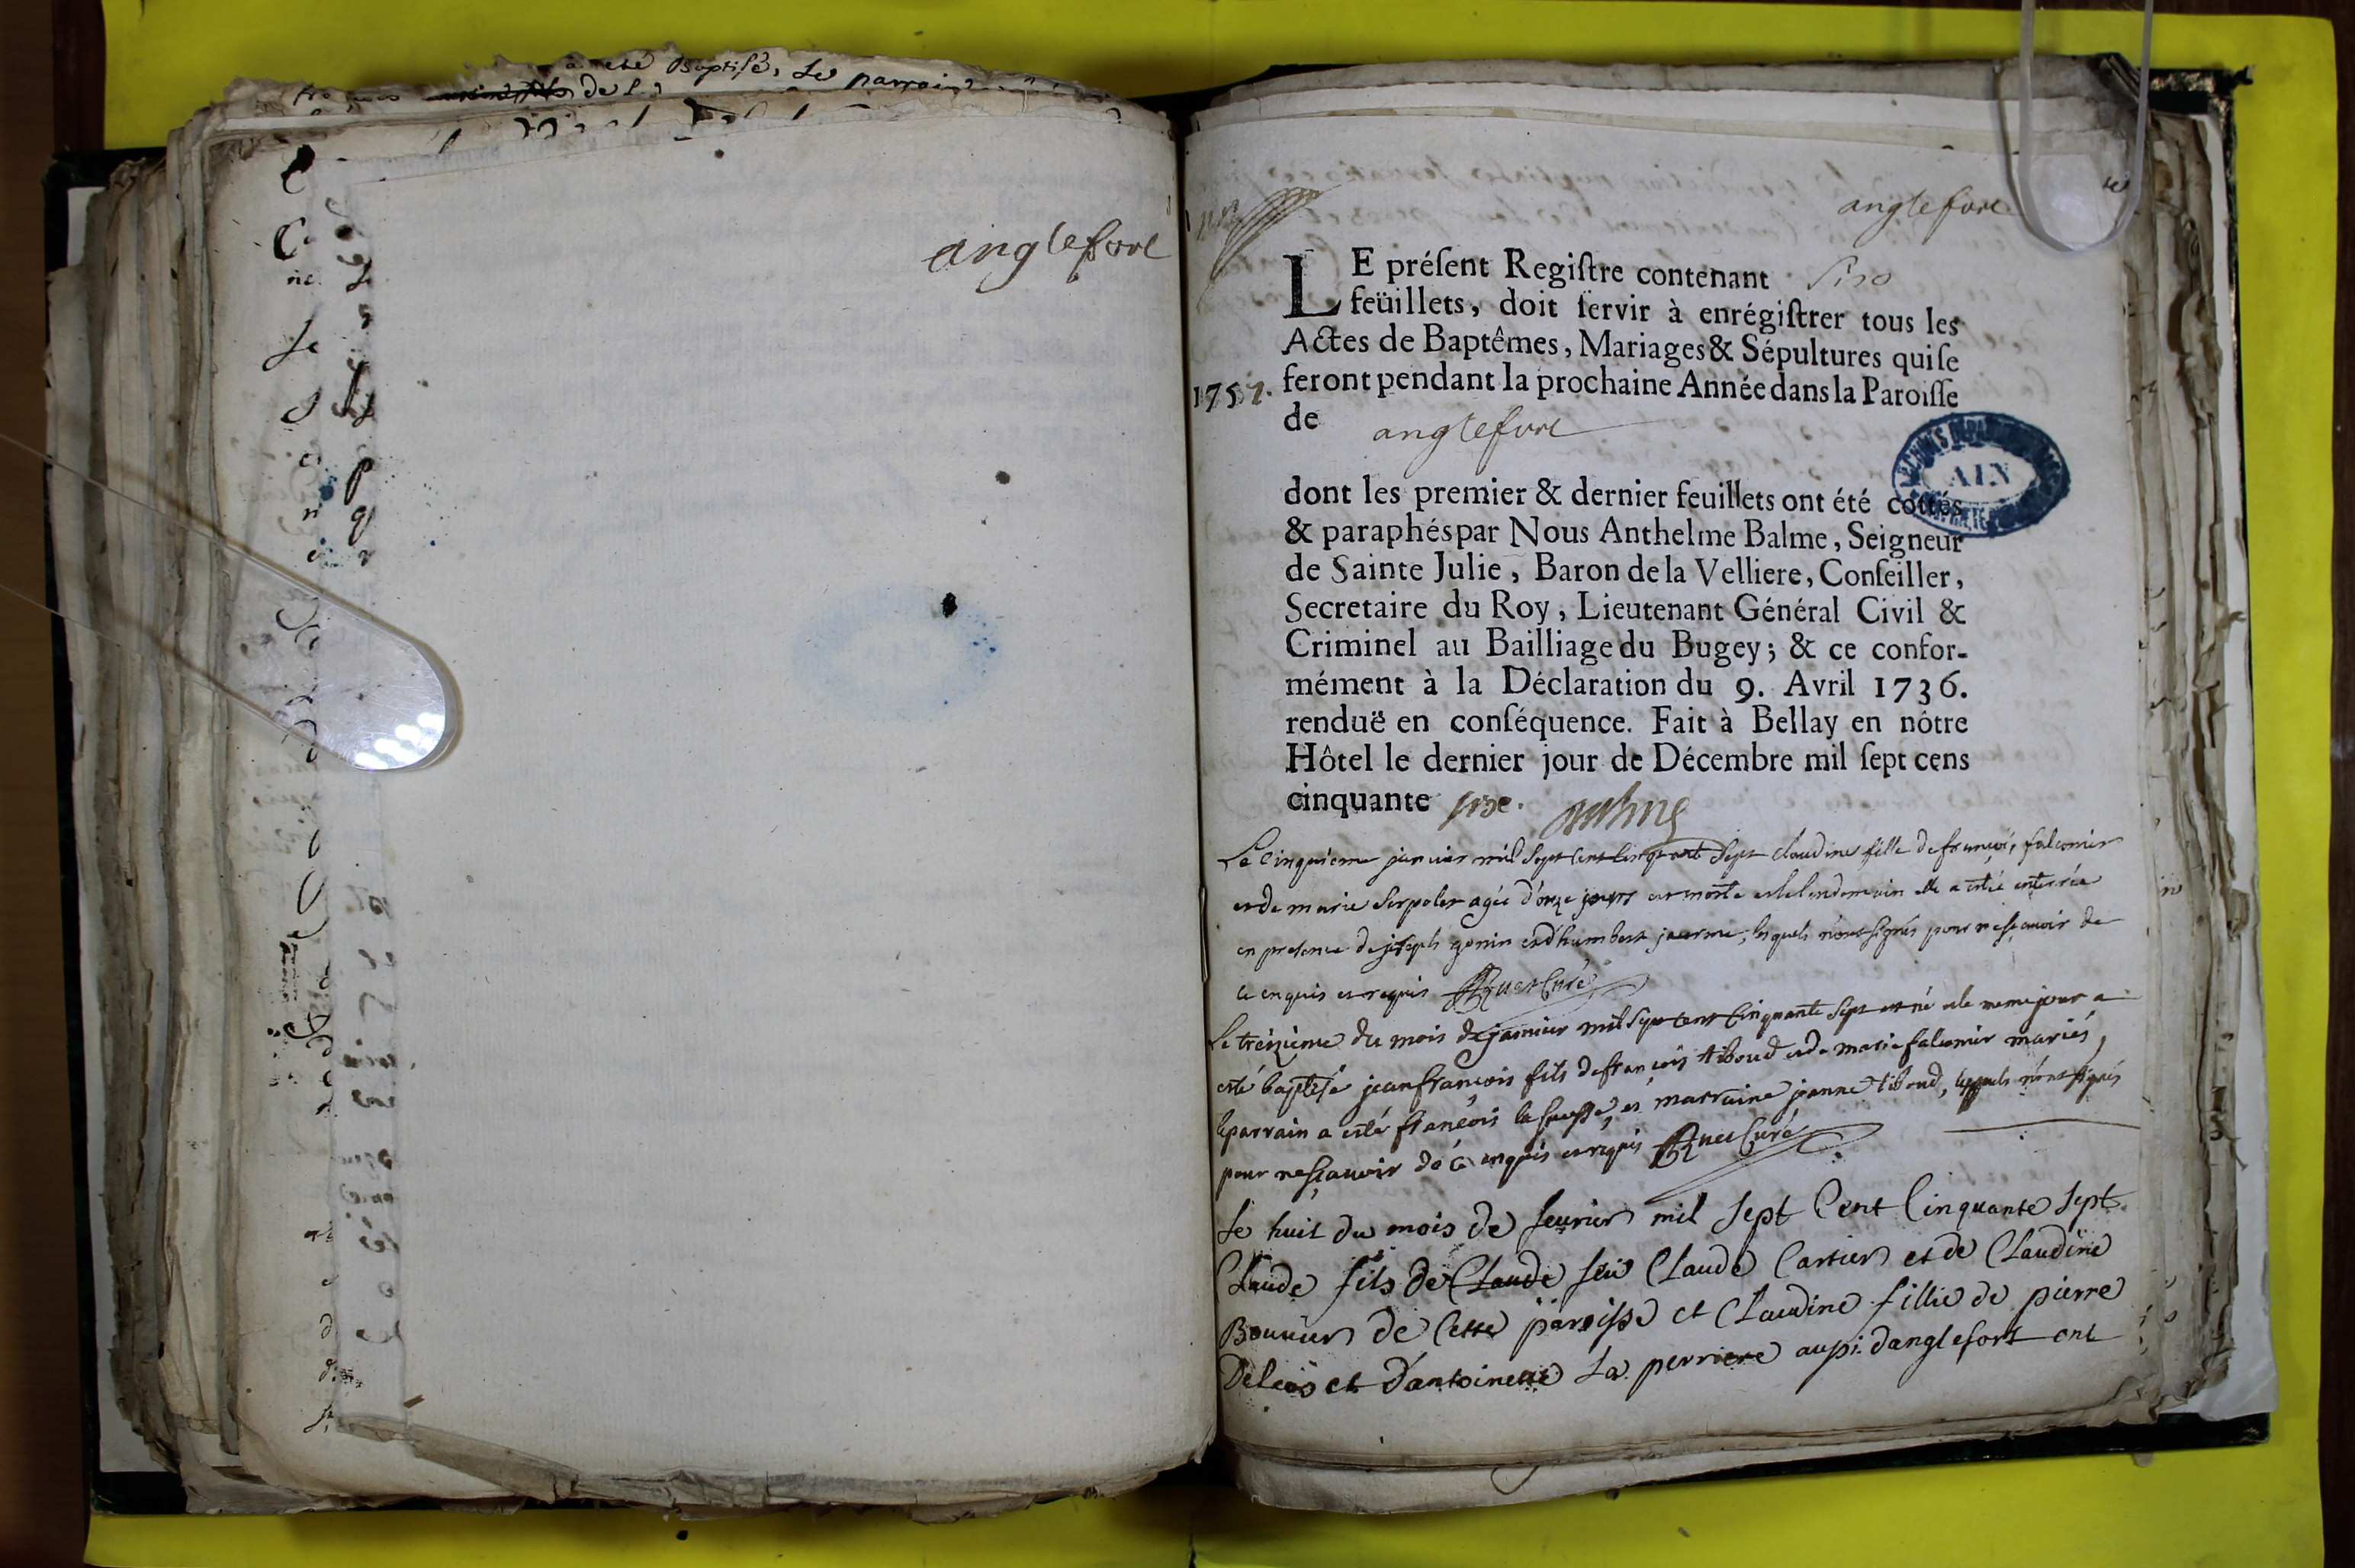 esté Baptisé, Le parrain
de
anglefort
anglefort
LE préſent Regiſtre contenant six
feüillets, doit ſervir à enrégiſtrer tous les
Actes de Baptêmes, Mariages & Sépultures qui ſe
1757. feront pendant la prochaine Année dans la Paroiſſe
de anglefort
dont les premier & dernier feuillets ont été cottés
& paraphés par Nous Anthelme Balme, Seigneur
de Sainte Julie, Baron de la Velliere, Conſeiller,
Secretaire du Roy, Lieutenant Général Civil &
Criminel au Bailliage du Bugey; & ce confor-
mément à la Déclaration du 9. Avril 1736.
renduë en conſéquence. Fait à Bellay en nôtre
Hôtel le dernier jour de Décembre mil ſept cens
cinquante six.
AIN
Le cinquieme janvier mil sept cent cinquante sept claudine fille de françois falconier
et de marie serpolet agée d'onze jours est morte et le lendemain elle a esté enterrée
en presence de joseph gonin et d'humbert jearme, lesquels n'ont signés pour ne sçavoir de
ce enquis et requis Curé
Le treizieme du mois de janvier mil sept cent cinquante sept est né et le meme jour a
esté baptisé jean françois fils de françois tiboud et de marie falconier mariés,
le parrain a esté françois et marraine jeanne tiboud, lesquels n'ont signés
pour ne sçavoir de ce enquis et requis Curé
Le huit du mois de feurier mil sept Cent Cinquante sept
Claude fils de Claude feu Claude Cartier et de Claudine
Bouuier de Cette paroisse et Claudine fillie de pierre
Deleas et d'antoinette La perriere aussi d'anglefort ont